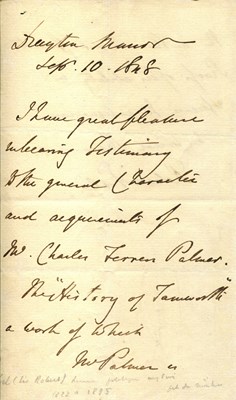 Drayton Manor
Sept. 10. 1848
I have great pleasure
in bearing Testimony
to the general Character
and acquirements of
Mr. Charles Ferrers Palmer.
The "History of Tamworth"
a work of which
Mr Palmer is
Sir Robert